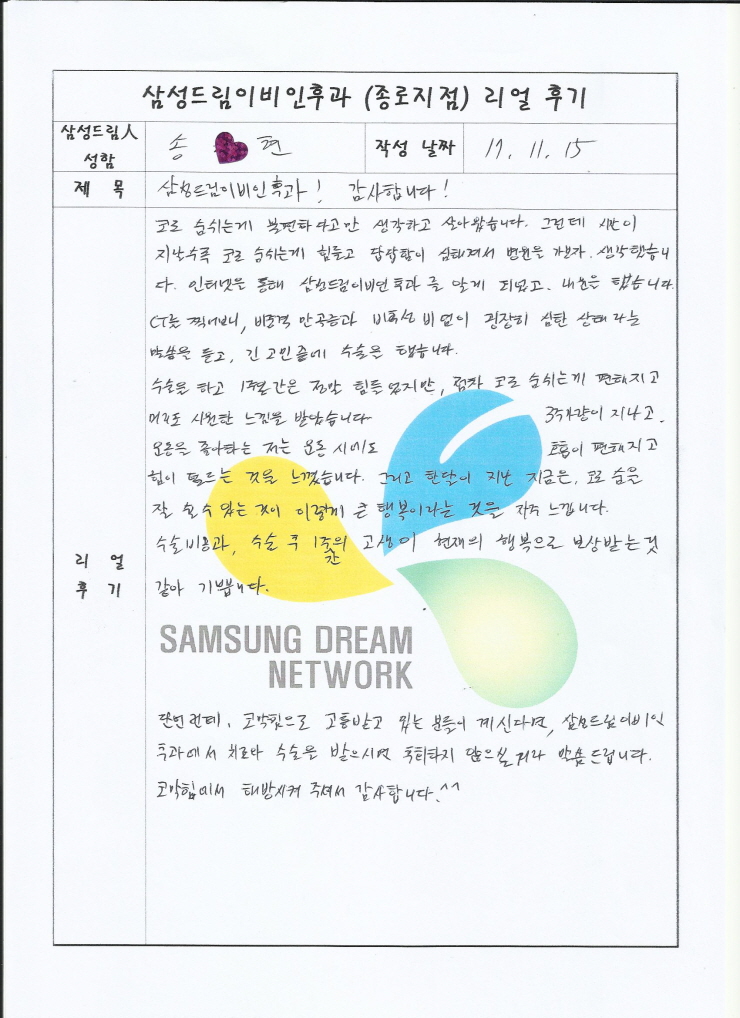 삼성드림이비인후과 (종로지점) 리얼 후기
삼성드림人
성함
송 편
작성 날짜
17. 11. 15
제 목
삼성드림이비인후과! 감사합니다!
리 얼
후 기
코로 숨쉬는게 불편하다고만 생각하고 살아왔습니다. 그런데 시간이
지날수록 코로 숨쉬는게 힘들고 답답함이 심해져서 병원을 가본자. 생각했습니
다. 인터넷을 통해 삼성드림이비인후과를 알게 되었고. 내원을 했습니다.
CT를 찍어보니, 비중격 만곡증과 비후성 비염이 굉장히 심한 상태라는
말씀을 듣고, 긴 고민 끝에 수술을 했습니다.
수술을 하고 1주일간은 정말 힘들었지만, 점차 코로 숨쉬는게 편해지고
머리도 시원한 느낌을 받았습니다 3주가량이 지나고.
운동을 좋아하는 저는 운동 시에도 호흡이 편해지고
힘이 덜드는 것을 느꼈습니다. 그리고 한달이 지난 지금은, 코로 숨을
잘 쉴 수 있는 것이 이렇게 큰 행복이라는 것을 자주 느낍니다.
수술비용과, 수술 후 1주간의 고생이 현재의 행복으로 보상받는 것
같아 기쁩니다.
SAMSUNG DREAM
NETWORK
단언컨데, 코막힘으로 고통받고 있는 분들이 계신다면, 삼성드림이비인
후과에서 치료와 수술을 받으시면 후회하지 않으실거라 말씀드립니다.
코막힘에서 해방시켜 주셔서 감사합니다.^^